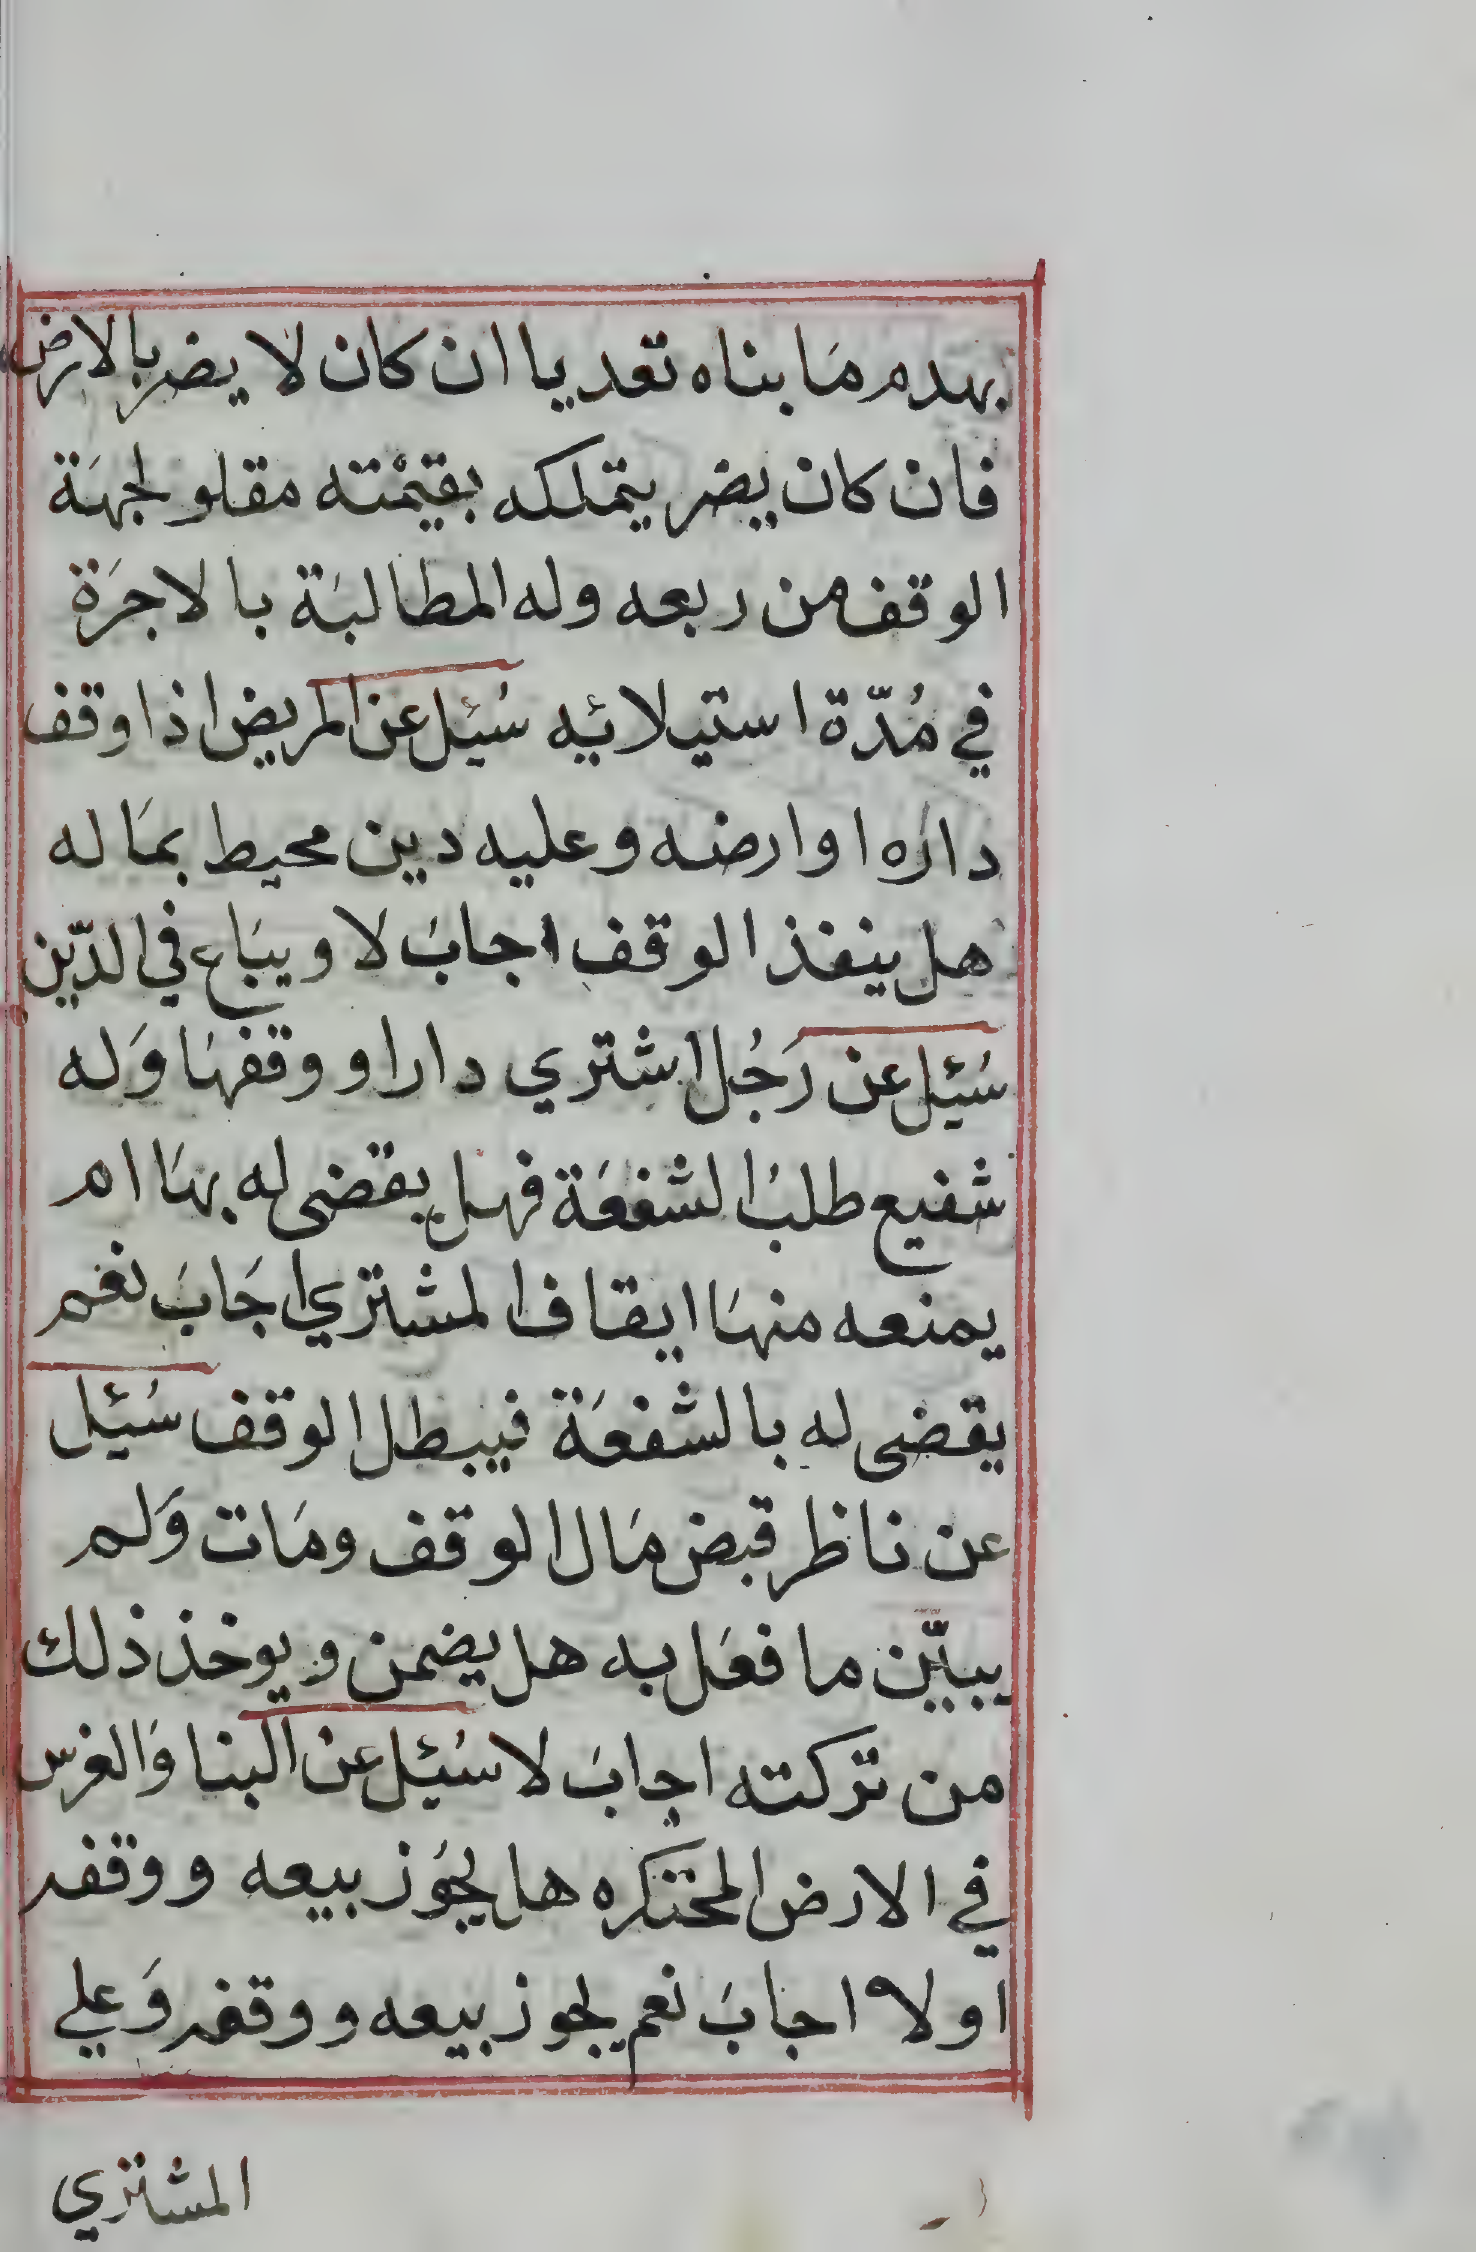 بهدم مَا بناه تعديا ان كان لا يضر بالارض
فان كان يضر يتملكه بقيمْته مقلو لجهَة
الوقف من ربعه وله المطالبَة بالاجرَة
في مُدّة استيلائه سُئِل عن المريض اذا وقف
داره او ارضه وعليه دين محيط بمَا له
هل ينفذ الوقف اجابَ لا ويبَاع في الدّين
سُئِل عن رَجُل اشتري دارا ووقفهَا وَله
شفيع طلبُ الشفعَة فهل يقضى له بهَا ام
يمنعه منهَا ايقاف المشتري اجَابَ نعم
يقضى له بالشفعَة فيبطل الوقف سُئِل
عن ناظر قبض مَال الوقف ومَات وَلم
يبيّن ما فعَل به هل يضمن ويوخذ ذلك
من تركته اجابَ لا سُئِل عن البنا وَالغرس
في الارض المحتكره هل يجُوز بيعه ووقفه
اولا اجابَ نعم يجوز بيعه ووقفه وَعلي
المشتري